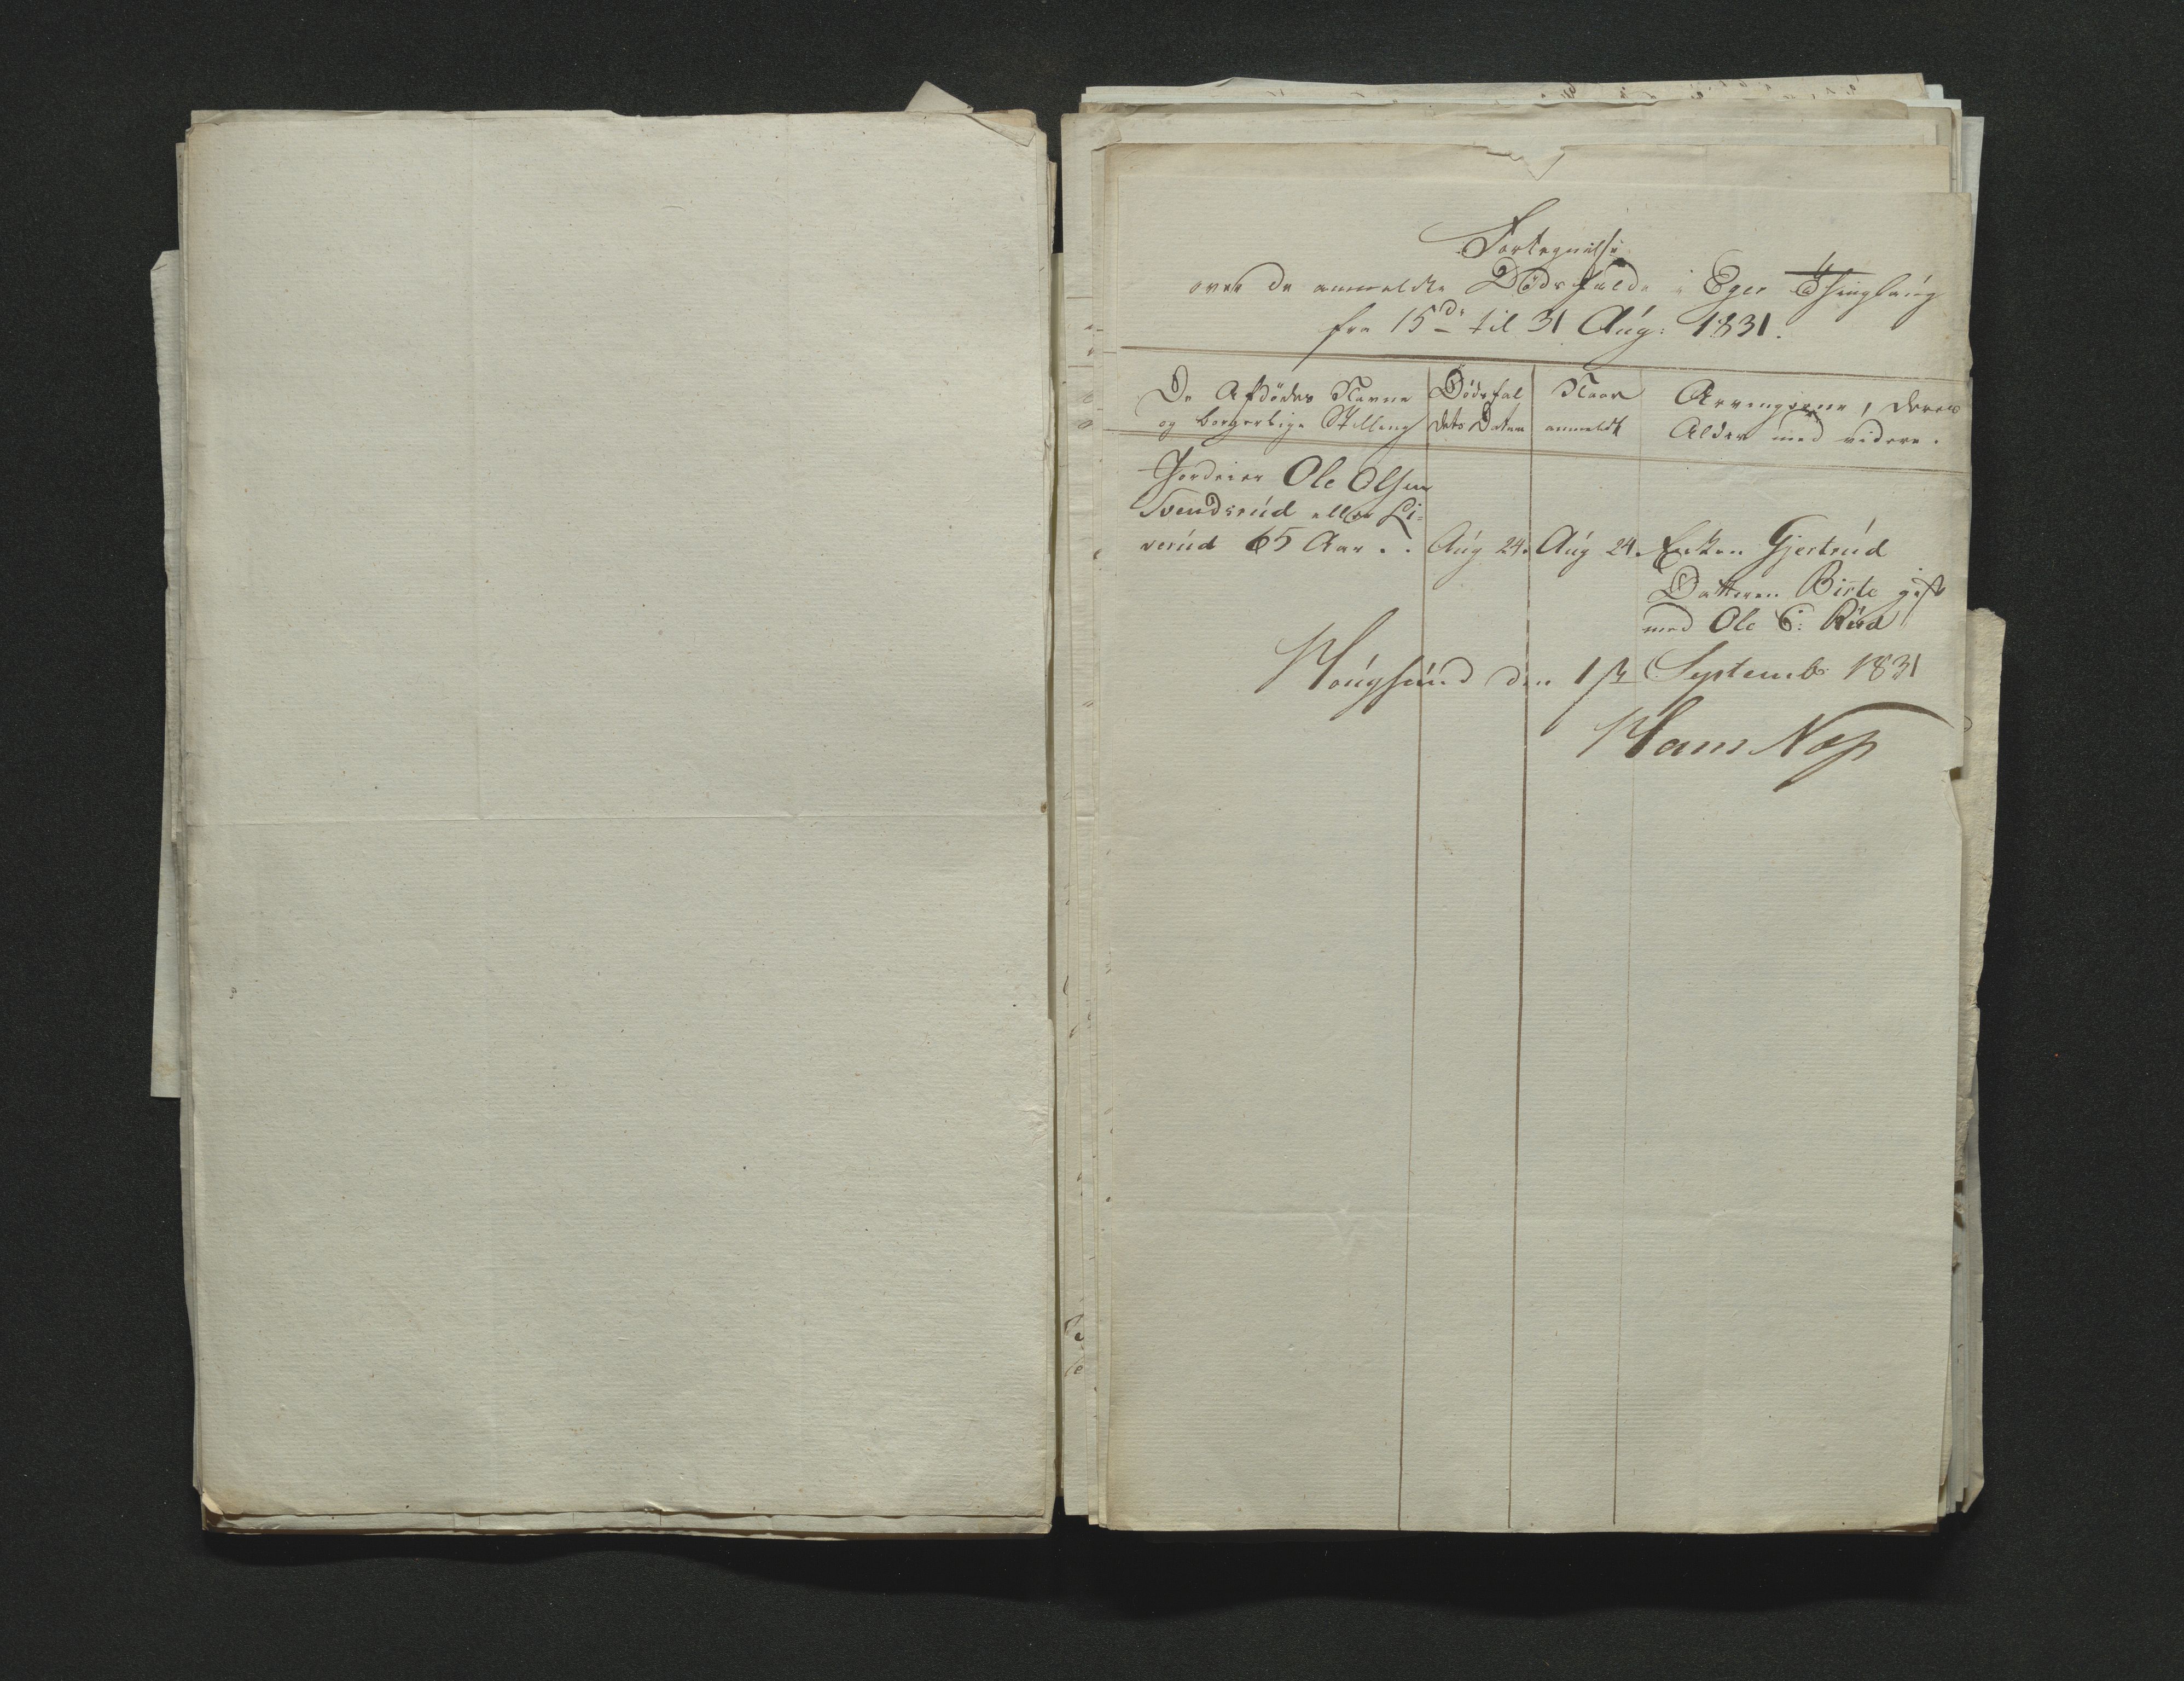 Fortegnelse
over de anmeldte Dødsfalde i Eger Thinglaug
fra 15de til 31 Aug: 1831.
De Afdødes Navne og borgerlige Stilling
Dødsfaldets Datum
Naar anmeldt
Arvingerne, deres Alder med videre.
Jordeier Ole Olsen
Svendsrud eller Li=
verud 65 Aar . . Aug 24. Aug 24. Enken Gjertrud
Datteren Birte gift
med Ole C: Rud
Hougsund den 1ste Septemb: 1831